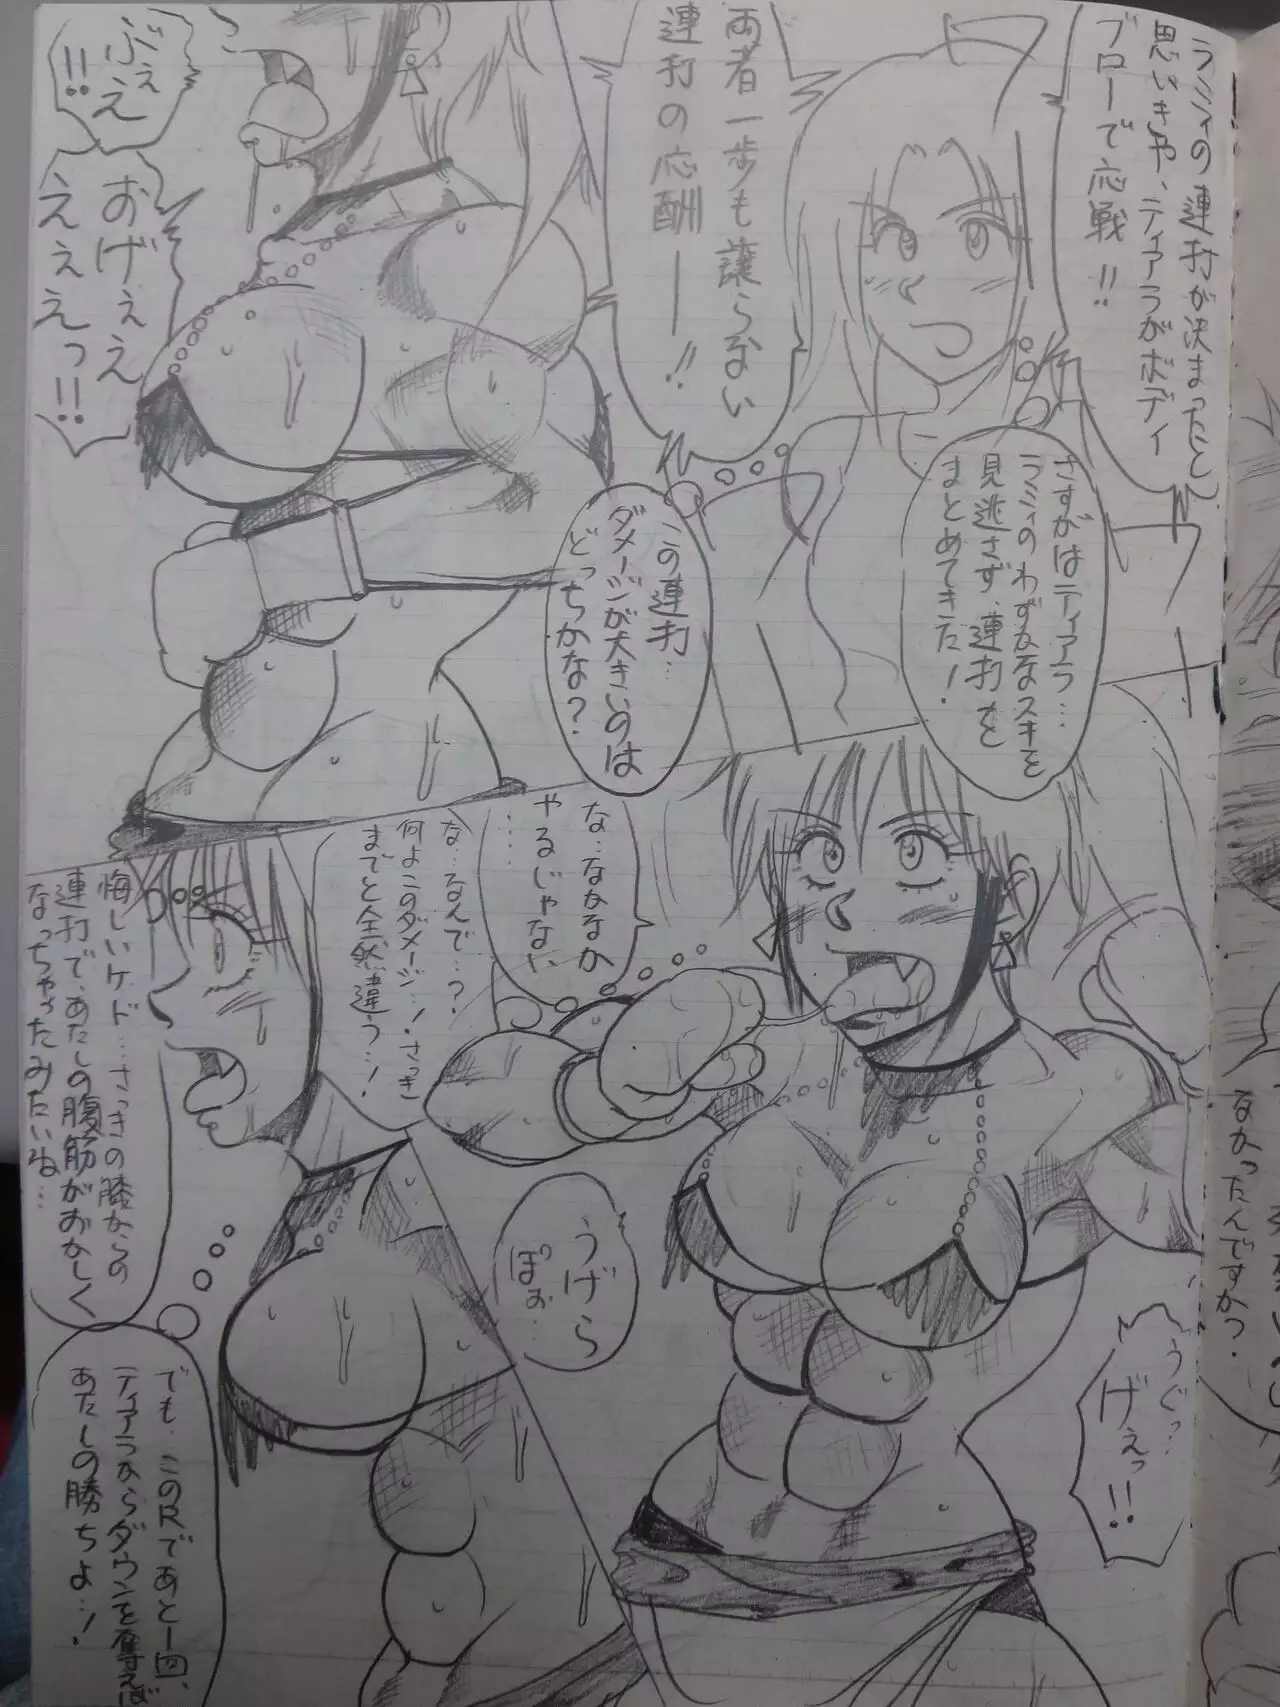 ラミィの連打が決まったと
思いきや、ティアラがボディ
ブローで応戦!!
両者一歩も譲らない
連打の応酬ーー!!
さすがはティアラ…
ラミィのわずかなスキを
見逃さず、連打を
まとめてきた!
この連打…
ダメージが大きいのは
どっちかな?
ぶぇえ
!!
おげぇえ
ぇぇぇえっ!!
な…なかなか
やるじゃない
……
な…なんで…?
何よこのダメージ…!さっき
までと全然違う…!
うげぇっ
ぽぉ…
うぐっ…
げぇっ!!
悔しいケド…さっきの膝からの
連打で、あたしの腹筋がおかしく
なっちゃったみたいね…
でも…このRであと一回、
ティアラからダウンを奪えば
あたしの勝ちよ…!
なかったんですか?